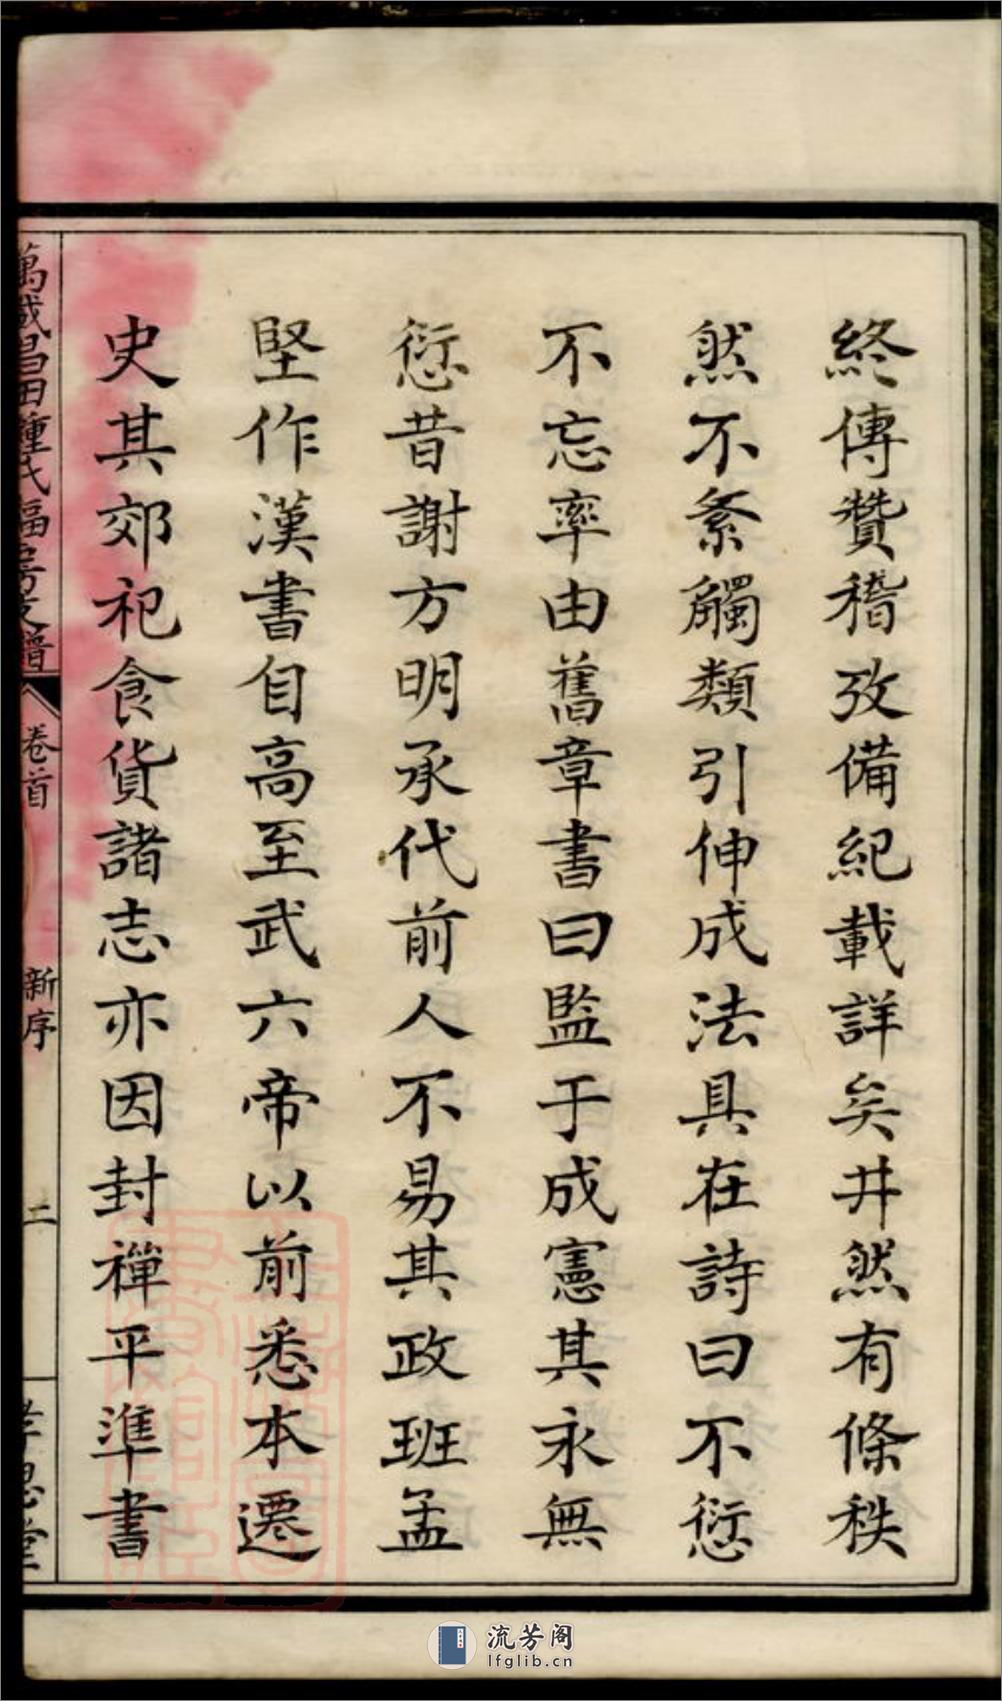 終傳贊稽攷備紀載詳矣井然有條秩
然不紊觸類引伸成法具在詩曰不愆
不忘率由舊章書曰監于成憲其永無
愆昔謝方明承代前人不易其政班孟
堅作漢書自高至武六帝以前悉本遷
史其郊祀食貨諸志亦因封禪平準書
萬載昌田鍾氏福房支譜
卷首
新序
二
孝思堂
流芳阁
lfglib.cn